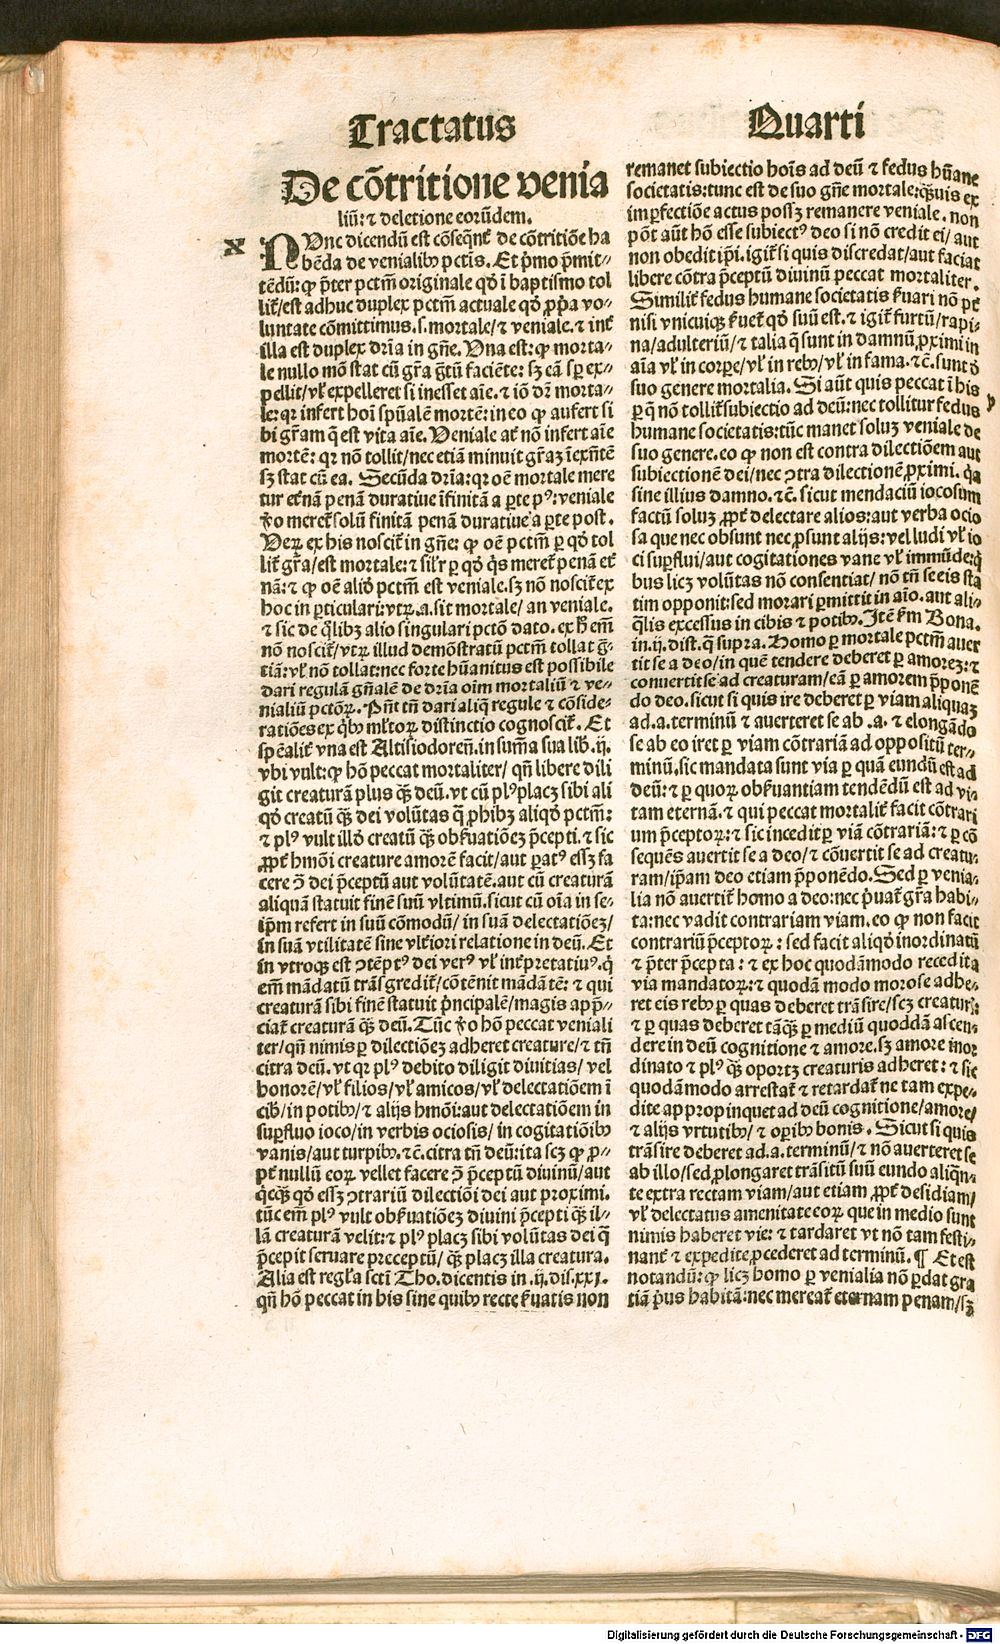 Tractatus
Quarti
De cõtritione venia
liũ: ⁊ deletione eorũdem.
x
NUnc dicendũ est cõseqñt᷑ de cõtritiõe ha
bẽda de venialibꝰ pctĩs. Et p̃mo p̃mit⸗
tẽdũ: ꝙ p̃ter pctm̃ originale qd̃ i baptismo tol
lit᷑/est adhuc duplex pctm̃ actuale qd̃ ꝓp̃a vo⸗
luntate cõmittimus. s. mortale/⁊ veniale. ⁊ int᷑
illa est duplex dr̃ia in gñe. Una est: ꝙ morta⸗
le nullo mõ stat cũ gr̃a gr̃tũ faciẽte: sꝫ eã sꝑ ex⸗
pellit/vl᷑ expelleret si inesset aĩe. ⁊ iõ dr̃ morta⸗
le: qr infert hoĩ spũalẽ mortẽ: in eo ꝙ aufert si
bi gr̃am q̃ est vita aĩe. Veniale at᷑ nõ infert aĩe
mortẽ: qr nõ tollit/nec etiã minuit gr̃aꝫ ĩexñtẽ
sꝫ stat cũ ea. Secũda dr̃ia: qr oẽ mortale mere
tur et᷑nã penã duratiue ĩfinitã a ꝑte pꝰ: veniale
ꝟo meret᷑ solũ finitã penã duratiue a ꝑte post.
Ueꝝ ex his noscit᷑ in gñe: ꝙ oẽ pctm̃ ꝑ qd̃ tol
lit᷑ gr̃a/est mortale: ⁊ sil᷑r ꝑ qd̃ q̃s meret᷑ penã et᷑
nã: ⁊ ꝙ oẽ aliõ pctm̃ est veniale. sꝫ nõ noscit᷑ ex
hoc in ꝑticulari: vtꝝ .a. sit mortale/ an veniale.
⁊ sic de q̃libꝫ alio singulari pctõ dato. ex h̃ em̃
nõ noscit᷑/ vtꝝ illud demõstratũ pctm̃ tollat gr̃
tiã: vl᷑ nõ tollat: nec forte hũanitus est possibile
dari regulã gñalẽ de dr̃ia oĩm mortaliũ ⁊ ve⸗
nialiũ pctõꝝ. Pñt tñ dari aliq̃ regule ⁊ cõside⸗
ratiões ex q̃bꝰ ml᷑toꝝ distinctio cognoscit᷑. Et
spẽalit᷑ vna est Altisiodoreñ. in sum̃a sua lib. ij.
vbi vult: ꝙ hõ peccat mortaliter/ qñ libere dili
git creaturã plus q̃ꝫ deũ. vt cũ plꝰ placꝫ sibi ali
qd̃ creatũ q̃ꝫ dei volũtas q̃ ꝓhibꝫ aliqd̃ pctm̃:
⁊ plꝰ vult illd̃ creatũ q̃ꝫ obs̃uatiõeꝫ p̃cepti. ⁊ sic
ꝓpt᷑ hm̃oi creature amorẽ facit/aut ꝑatꝰ essꝫ fa
cere ɔ̃ dei p̃ceptũ aut volũtatẽ. aut cũ creaturã
aliquã statuit finẽ suũ vltimũ. sicut cũ oĩa in se⸗
ip̃m refert in suũ cõmodũ/ in suã delectatiõeꝫ/
in suã vtilitatẽ sine vlt᷑iori relatione in deũ. Et
in vtroqꝫ est ɔtẽptꝰ dei verꝰ vl᷑ int᷑pretatiuꝰ. q̃
em̃ mãdatũ trãsgredit᷑/cõtẽnit mãdãtẽ: ⁊ qui
creaturã sibi finẽ statuit p̃ncipalẽ/magis ap̃p̃⸗
ciat᷑ creaturã q̃ꝫ deũ. Tũc ꝟo hõ peccat veniali
ter/qñ nimis ꝑ dilectiõeꝫ adheret creature/⁊ tñ
citra deũ. vt qr plꝰ debito diligit diuitias/ vel
honorẽ/vl᷑ filios/vl᷑ amicos/vl᷑ delectatiõem ĩ
cibꝰ/in potibꝰ/⁊ alijs hm̃oi: aut delectatiõem in
suꝑfluo ioco/in verbis ociosis/ in cogitatiõibꝰ
vanis/aut turpibꝰ. ⁊c̃. citra tñ deũ: ita scꝫ ꝙ ꝓ⸗
pt᷑ nullũ eoꝝ vellet facere ɔ̃ p̃ceptũ diuinũ/aut
q̃cq̃ꝫ qd̃ essꝫ ɔtrariũ dilectiõi dei aut proximi.
tũc em̃ plꝰ vult obs̃uatiõeꝫ diuini p̃cepti q̃ꝫ il⸗
lã creaturã velit: ⁊ plꝰ placꝫ sibi volũtas dei q̃
p̃cepit seruare preceptũ/ q̃ꝫ placꝫ illa creatura.
Alia est regl᷑a sctĩ Tho. dicentis in .ij. dis. xxj.
qñ hõ peccat in his sine quibꝰ recte s̃uatis non
remanet subiectio hoĩs ad deũ ⁊ fedus hũane
societatis: tunc est de suo gñe mortale: q̃ꝫuis ex
imꝑfectiõe actus possꝫ remanere veniale. non
põt aũt hõ esse subiectꝰ deo si nõ credit ei/ aut
non obedit ip̃i. igit᷑ si quis discredat/aut faciat
libere cõtra p̃ceptũ diuinũ peccat mortaliter.
Similit᷑ fedus humane societatis s̃uari nõ pt᷑
nisi vnicuiqꝫ s̃uet᷑ qd̃ suũ est. ⁊ igit᷑ furtũ/rapi⸗
na/adulteriũ/⁊ talia q̃ sunt in damnũ ꝓximi in
aĩa vl᷑ in corꝑe/vl᷑ in rebꝰ/vl᷑ in fama. ⁊c̃. sunt d̃
suo genere mortalia. Si aũt quis peccat ĩ his
y
ꝑ q̃ nõ tollit᷑ subiectio ad deũ: nec tollitur fedus
humane societatis: tũc manet soluꝫ veniale de
suo genere. eo ꝙ non est contra dilectiõem aut
subiectionẽ dei/nec ɔtra dilectionẽ ꝓximi. q̃a
sine illius damno. ⁊c̃. sicut mendaciũ iocosum
factũ soluꝫ ꝓpt᷑ delectare alios: aut verba ocio
sa que nec obsunt nec ꝓsunt alijs: vel ludi vl᷑ io
ci suꝑflui/aut cogitationes vane vl᷑ immũde: q̃
bus licꝫ volũtas nõ consentiat/ nõ tñ se eis sta
tim opponit: sed morari ꝑmittit in aĩo. aut ali⸗
q̃lis excessus in cibis ⁊ potibꝰ. Itẽ s̃m Bona.
in .ij. dist. q̃ supra. Homo ꝑ mortale pctm̃ auer
tit se a deo/in quẽ tendere deberet ꝑ amoreꝫ: ⁊
conuertit se ad creaturam/eã ꝑ amorem p̃ponẽ
do deo. sicut si quis ire deberet ꝑ viam aliquaꝫ
ad .a. terminũ ⁊ auerteret se ab .a. ⁊ elongãdo
se ab eo iret ꝑ viam cõtrariã ad oppositũ ter⸗
minũ. sic mandata sunt via ꝑ quã eundũ est ad
deũ: ⁊ ꝑ quoꝝ obs̃uantiam tendẽdũ est ad vi⸗
tam eternã. ⁊ qui peccat mortalit᷑ facit cõtrari
um p̃ceptoꝝ: ⁊ sic incedit ꝑ viã cõtrariã: ⁊ ꝑ cõ
sequẽs auertit se a deo/⁊ cõuertit se ad creatu⸗
ram/ip̃am deo etiam p̃ponẽdo. Sed ꝑ venia⸗
lia nõ auertit᷑ homo a deo: nec p̃uat᷑ gr̃a habi⸗
ta: nec vadit contrariam viam. eo ꝙ non facit
contrariũ p̃ceptoꝝ: sed facit aliqd̃ inordinatũ
⁊ p̃ter p̃cepta: ⁊ ex hoc quodãmodo recedit a
via mandatoꝝ: ⁊ quodã modo morose adhe⸗
ret eis rebꝰ ꝑ quas deberet trãsire/scꝫ creatur̃:
⁊ ꝑ quas deberet tãq̃ꝫ ꝑ mediũ quoddã ascen⸗
dere in deũ cognitione ⁊ amore. sꝫ amore inor
dinato ⁊ plꝰ q̃ꝫ oportꝫ creaturis adheret: ⁊ sic
quodãmodo arrestat᷑ ⁊ retardat᷑ ne tam expe⸗
dite appropinquet ad deũ cognitione/amore/
⁊ alijs v̓rtutibꝰ/ ⁊ oꝑibꝰ bonis. Sicut si quis
trãsire deberet ad .a. terminũ/ ⁊ nõ auerteret se
ab illo/sed ꝓlongaret trãsitũ suũ eundo aliqñ⸗
te extra rectam viam/aut etiam ꝓpt᷑ desidiam/
vl᷑ delectatus amenitate eoꝝ que in medio sunt
nimis haberet vie: ⁊ tardaret vt nõ tam festi⸗
nant᷑ ⁊ expedite ꝓcederet ad terminũ. ¶ Et est
notandũ: ꝙ licꝫ homo ꝑ venialia nõ ꝑdat gra
tiã p̃us habitã: nec mereat᷑ eternam penam/sꝫ
Digitalisierung gefördert durch die Deutsche Forschungsgemeinschaft - DFG